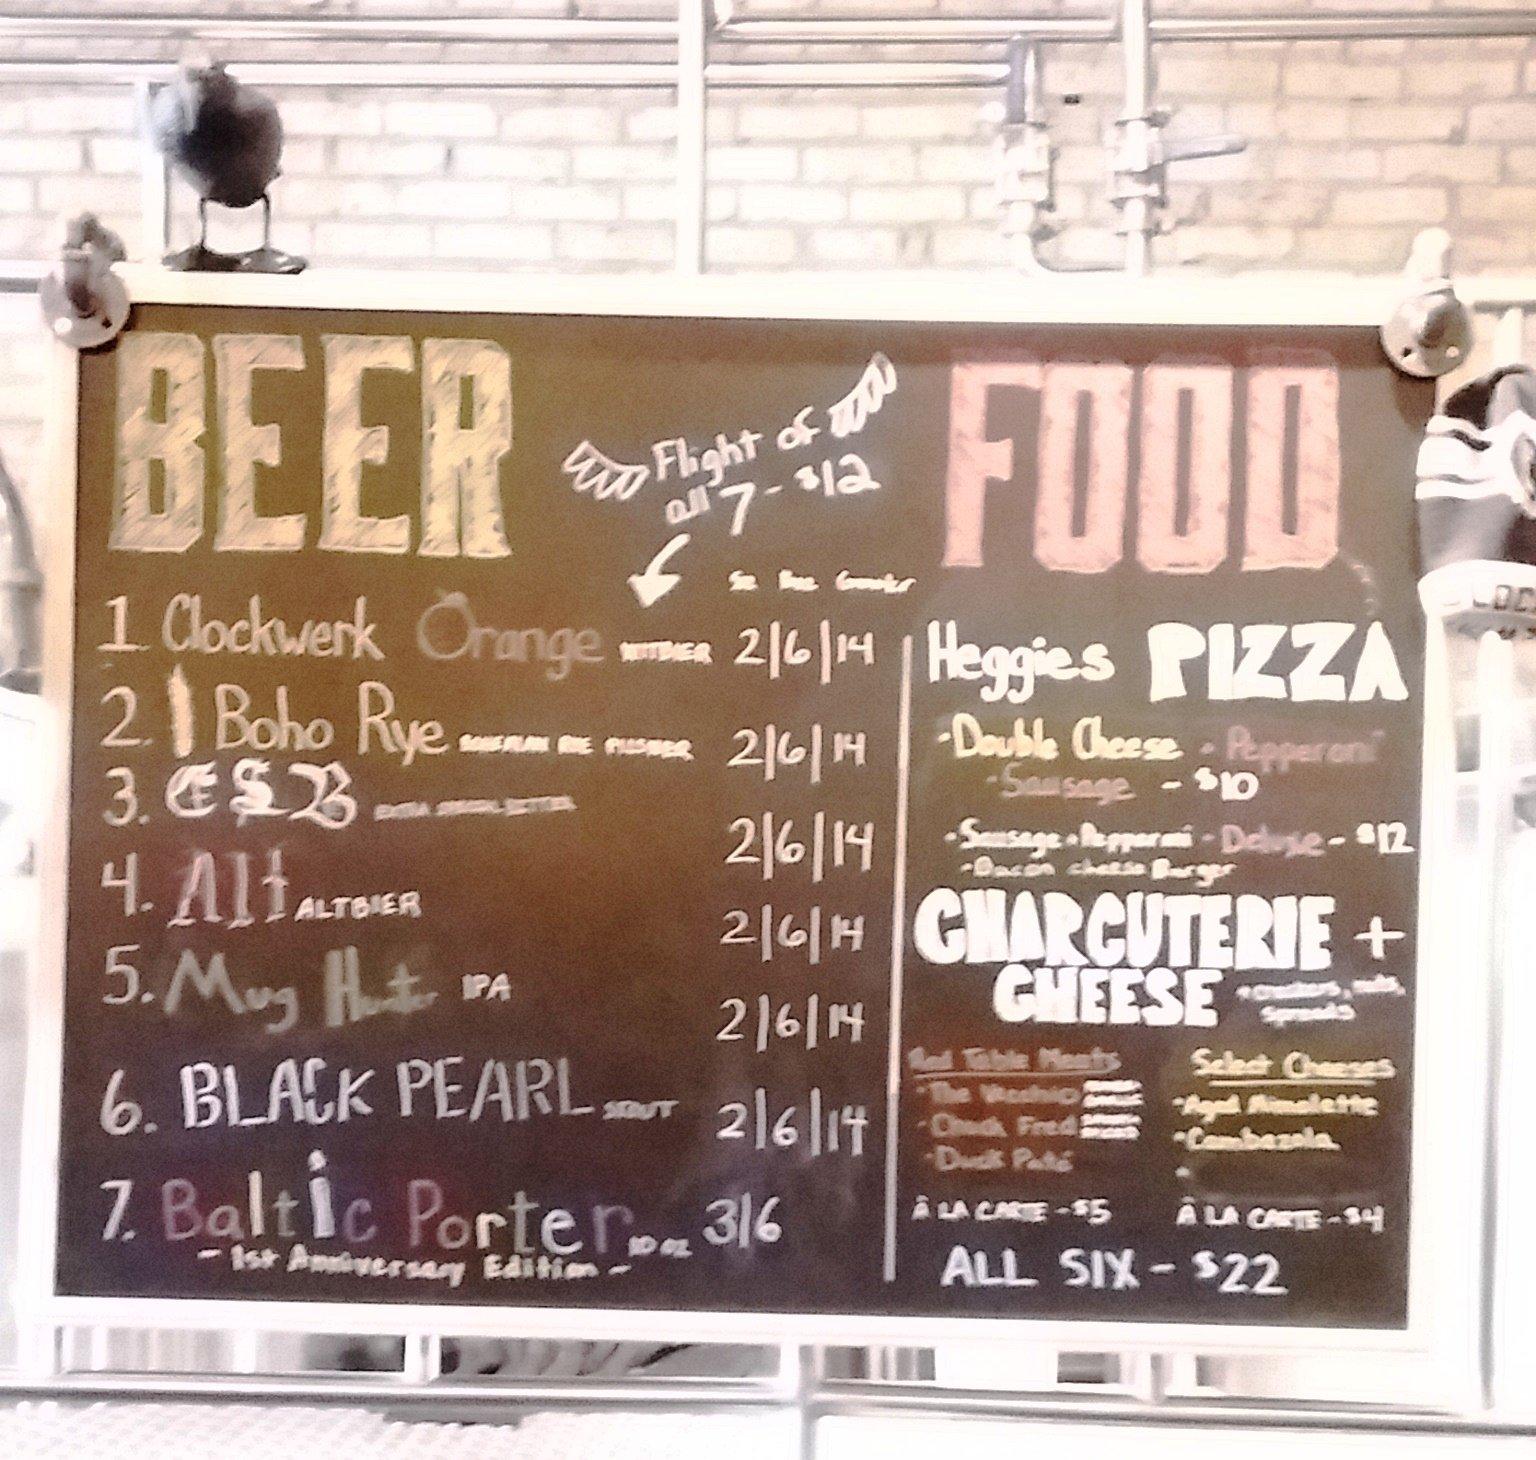 BEER
Flight of
all 7 - $12
5oz Pint Growler
1. Clockwerk Orange WITBIER 2|6|14
2. Boho Rye BOHEMIAN RYE PILSNER 2|6|14
3. ESB EXTRA SPECIAL BITTER 2|6|14
4. Alt ALTBIER 2|6|14
5. Mug Hunter IPA 2|6|14
6. BLACK PEARL STOUT 2|6|14
7. Baltic Porter 10 oz 3|6
- 1st Anniversary Edition -
FOOD
Heggies PIZZA
• Double Cheese • Pepperoni
• Sausage - $10
• Sausage + Pepperoni • Deluxe - $12
• Bacon cheese Burger
CHARCUTERIE +
CHEESE + crackers, nuts,
spreads
Red Table Meats
• The Vecchio
• Chuck Fred
• Duck Paté
À LA CARTE - $5
Select Cheeses
• Aged Mimolette
• Cambazola
À LA CARTE - $4
ALL SIX - $22